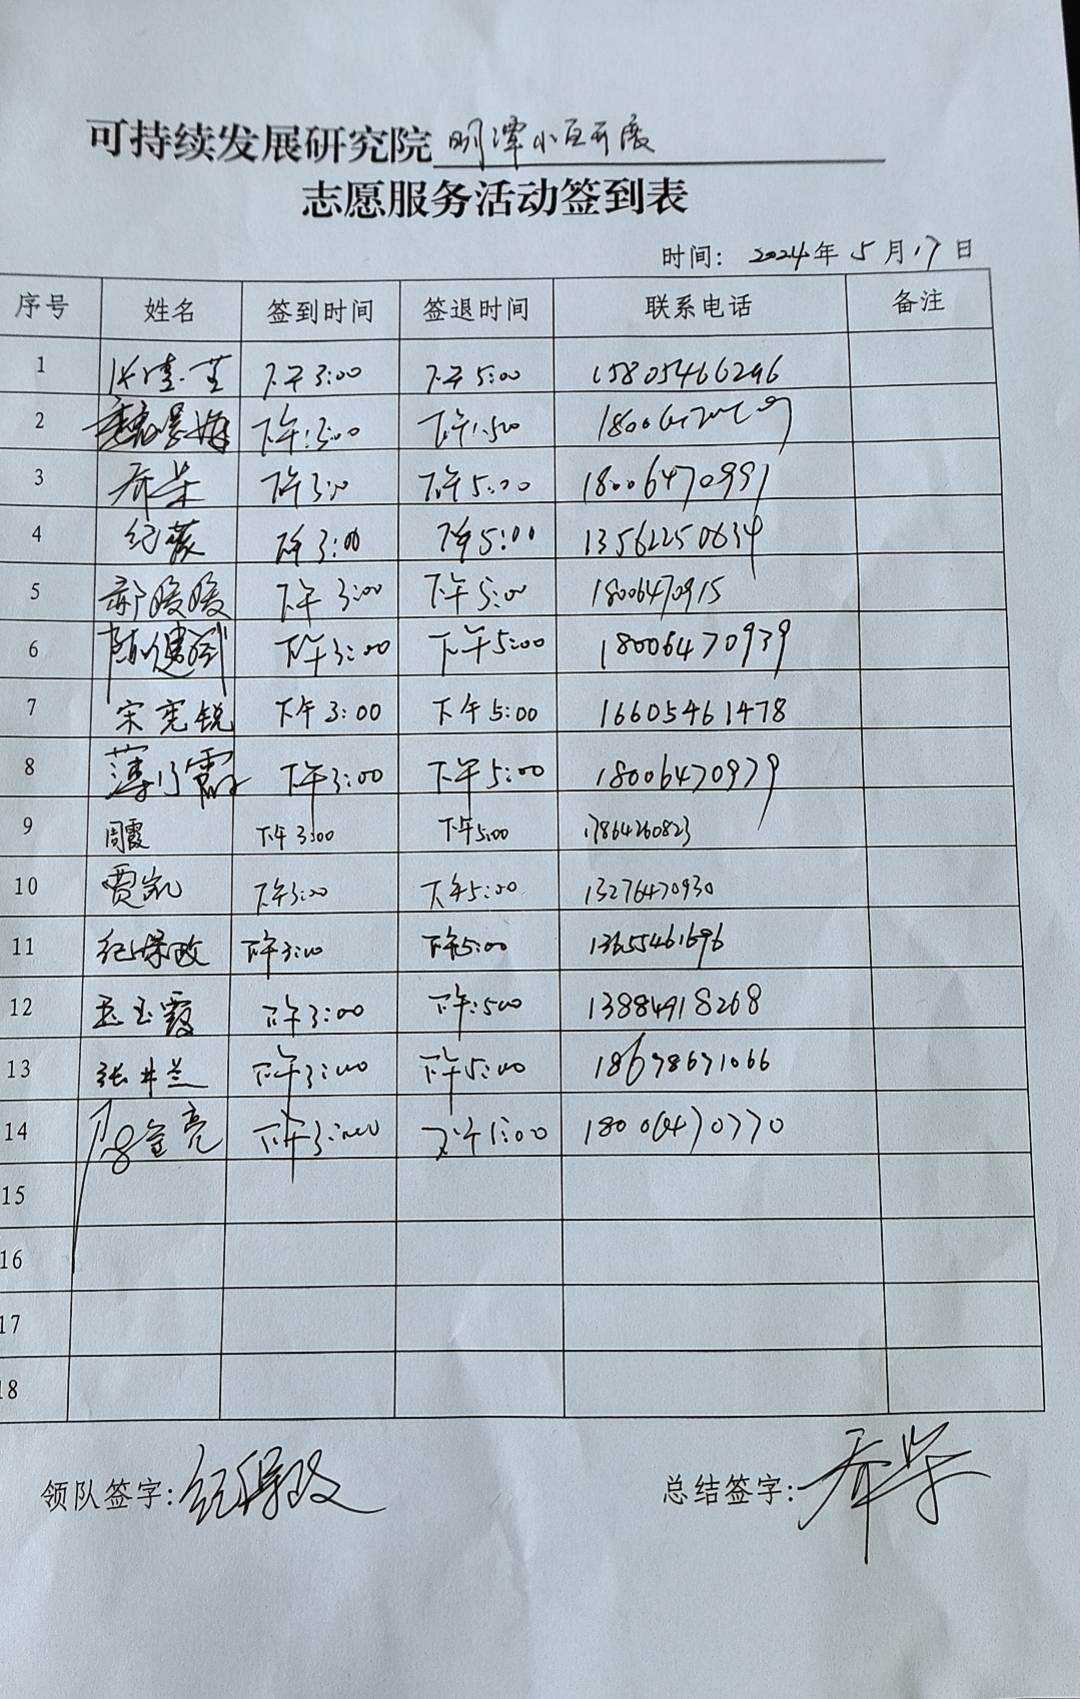 可持续发展研究院 明潭小区开展
志愿服务活动签到表
时间: 2024年 5 月 17 日
序号 姓名 签到时间 签退时间 联系电话 备注
1 下午3:00 下午5:00 15805466296
2 下午:3:00 下午:500
3 乔荣 下午3:00 下午5:00 18006470991
4 纪薇 下午3:00 下午5:00 13561250634
5 郝媛媛 下午3:00 下午5:00 18006470915
6 下午3:00 下午5:00 18006470939
7 宋宪锐 下午3:00 下午5:00 16605461478
8 下午3:00 下午5:00 18006470979
9 周霞 下午3:00 下午5:00 17864260823
10 贾凯 下午3:00 下午5:00 13276470930
11 纪保政 下午3:00 下午5:00 13655461696
12 玉霞 下午3:00 下午:500 13884918268
13 张井兰 下午3:00 下午5:00 18678671066
14 下午3:00 18006470770
15
16
17
18
领队签字: 纪保政 总结签字: 乔荣